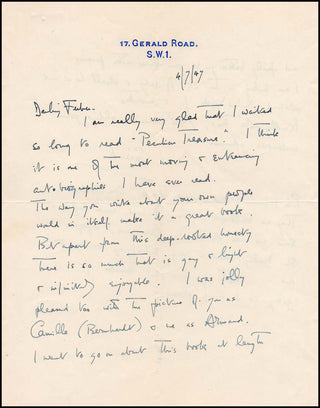 17, GERALD ROAD.
S.W.1.
4/7/47
Darling Ferber.
I am really very glad that I waited
so long to read "Peculiar Treasure." I think
it is one of the most moving & entrancing
autobiographies I have ever read.
The way you write about your own people
would in itself make it a great book.
But apart from this deep-rooted honesty
there is so much that is gay & light
& infinitely enjoyable. I was jolly
pleased too with the picture of you as
Camille (Bernhardt) & me as Armand.
I want to go on about this book at length